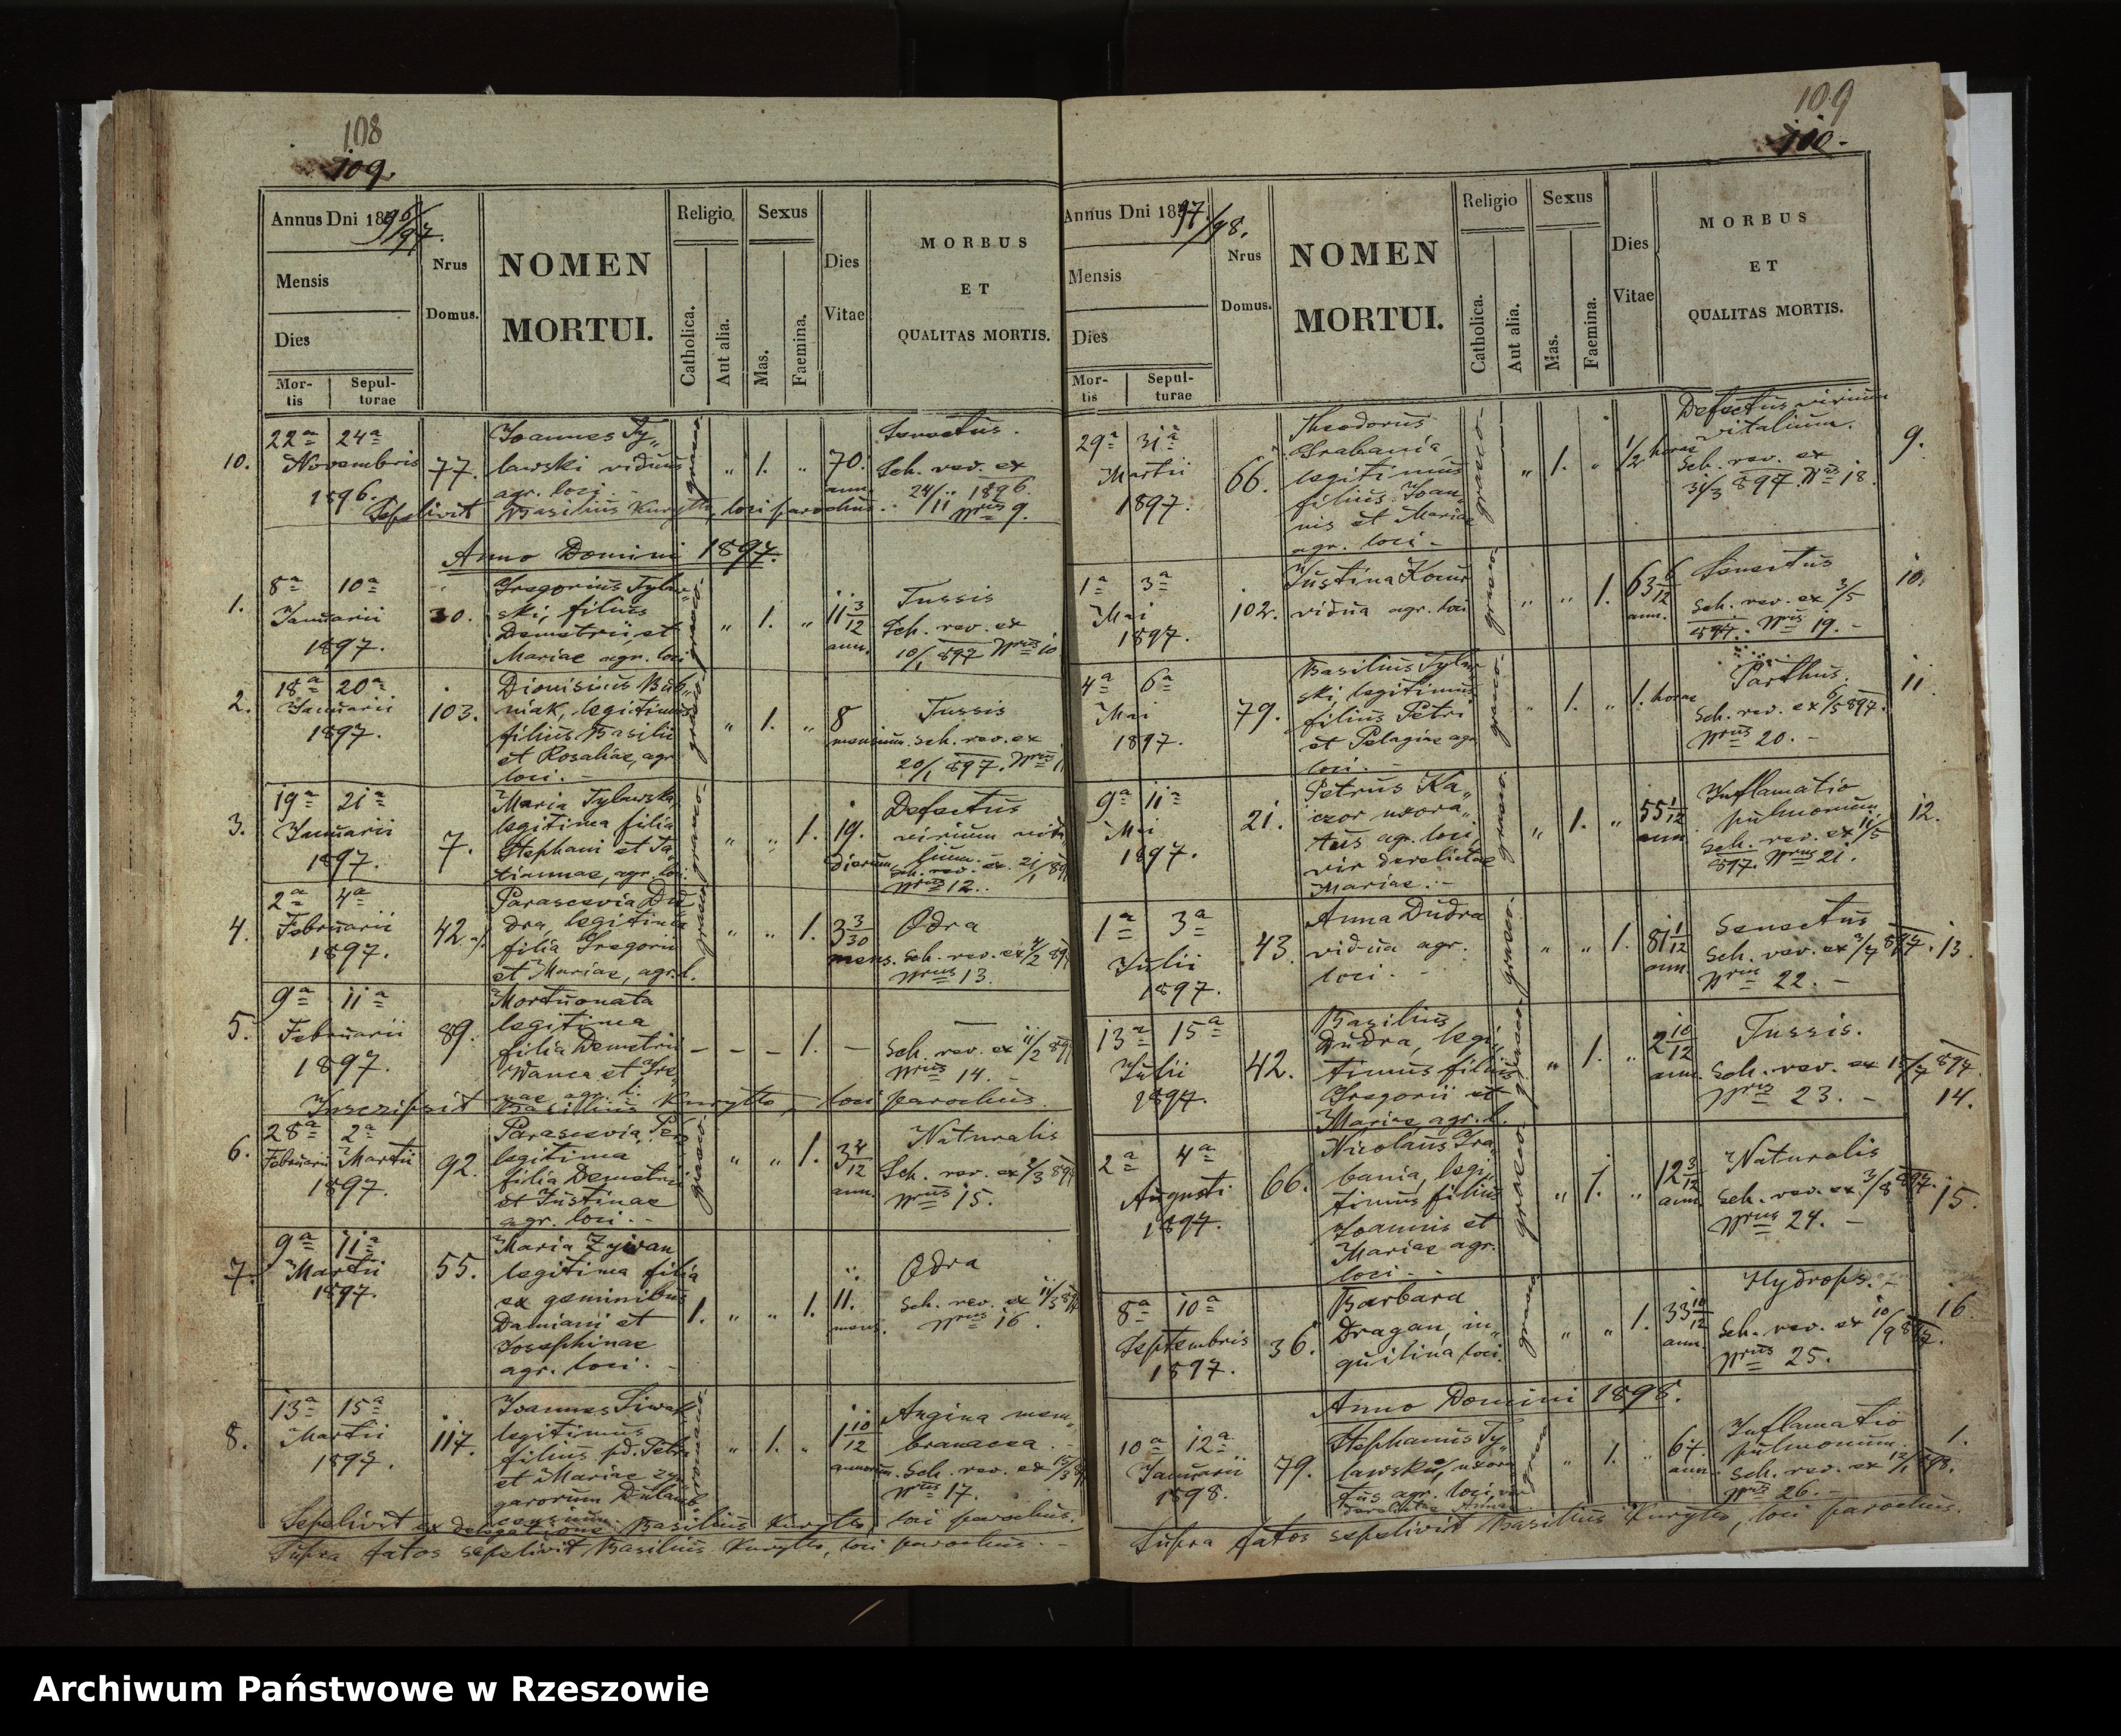 108
109.
Annus Dni 1896/97.
Mensis
Dies
Mor-
tis
Sepul-
turae
Nrus
Domus.
NOMEN
MORTUI.
Religio
Catholica.
Aut alia.
Sexus
Mas.
Faemina.
Dies
Vitae
MORBUS
ET
QUALITAS MORTIS.
10.
22a 24a
Novembris
1896.
77.
Joannes Ty„
lawski viduus
agr. loci
graeco
„ 1. „
70.
ann.
Senectus.
Sch. rev. ex
24/11 1896
Nrus 9.
Sepelivit Basilius Kurytto, loci parochus.
Anno Domini 1897.
1.
8a 10a
Januarii
1897.
30.
Gregorius Tylaw„
ski, filius
Demetrii, et
Mariae agr. loci
graeco.
„ 1. „
11 3/12
ann.
Tussis
Sch. rev. ex
10/1 897 Nrus 10
2.
18a 20a
Januarii
1897.
103.
Dionisius Bub„
niak, legitimus
filius Basilii
et Rosaliae, agr.
loci. -
graeco
„ 1. „
8
mensium.
Tussis
Sch. rev. ex
20/1 897. Nrus 11
3.
19a 21a
Januarii
1897.
7.
Maria Tylawska
legitima filia
Stephani et Ta„
tiannae, agr. loci.
graeco.
„ „ 1.
19.
dierum
Defectus
virium vita„
lium. -
Sch. rev. ex 21/1 897
Nrus 12.
4.
2a 4a
Februarii
1897.
42.
Parascevia Du„
dra, legitima
filia Gregorii
et Mariae, agr. l.
graeco
„ „ 1.
3 3/30
mens.
Odra
Sch. rev. ex 4/2 897
Nrus 13.
5.
9a 11a
Februarii
1897.
89.
Mortuonata
legitima
filia Demetrii
Wanca et Ire„
nae, agr. l.
- - - 1. -
Sch. rev. ex 11/2 897
Nrus 14. -
Inscripsit Basilius Kurytto, - loci parochus.
6.
28a 2a
Februarii Martii
1897.
92.
Parascevia
legitima
filia Demetrii
et Justinae
agr. loci. -
graeco
„ „ 1.
3 4/12
ann.
Naturalis
Sch. rev. ex 2/3 897
Nrus 15.
7.
9a 11a
Martii
1897.
55.
Maria Zywan
legitima filia
ex geminibus
Damiani et
Josephinae
agr. loci. -
1. „ „ 1.
11.
mens.
Odra
Sch. rev. ex 11/3 897
Nrus 16.
8.
13a 15a
Martii
1897.
117.
Joannes Siwak
legitimus
filius pd. Petri
et Mariae zyn„
garorum
romano.
„ 1. „
1 10/12
annorum.
Angina mem„
branacea. -
Sch. rev. ex 15/3 897
Nrus 17.
Sepelivit ex delegatione Basilius Kurytto, loci parochus.
Supra fatos sepelivit Basilius Kurytto, loci parochus. -
109
110.
Annus Dni 1897./98.
Mensis
Dies
Mor-
tis
Sepul-
turae
Nrus
Domus.
NOMEN
MORTUI.
Religio
Catholica.
Aut alia.
Sexus
Mas.
Faemina.
Dies
Vitae
MORBUS
ET
QUALITAS MORTIS.
29a 31a
Martii
1897.
66.
Theodorus
Grabania
legitimus
filius Joan„
nis et Mariae
agr. loci -
graeco
„ 1. „
1/2 horae
Defectus virium
vitalium.
Sch. rev. ex
31/3 897. Nrus 18.
9.
1a 3a
Mai
1897.
102.
Justina Kocur
vidua agr. loci
graeco.
„ „ 1.
63 6/12
ann.
Senectus
Sch. rev. ex 3/5
897. Nrus 19. -
10.
4a 6a
Mai
1897.
79.
Basilius Tylaw„
ski, legitimus
filius Petri
et Pelagiae agr.
loci. -
graeco.
„ 1. „
1. horae
Parthus.
Sch. rev. ex 6/5 897.
Nrus 20. -
11.
9a 11a
Mai
1897.
21.
Petrus Ka„
czor uxora„
tus agr. loci,
vir derelictae
Mariae. -
graeco.
„ 1. „
55 1/12
ann.
Inflamatio
pulmonum.
Sch. rev. ex 11/5
897. Nrus 21.
12.
1a 3a
Julii
1897.
43.
Anna Dudra
vidua agr.
loci. -
graeco.
„ „ 1.
81 1/12
ann.
Senectus
Sch. rev. ex 3/7 897.
Nrus 22. -
13.
13a 15a
Julii
1897.
42.
Basilius
Dudra, legi„
timus filius
Gregorii et
Mariae, agr. l.
graeco
„ 1. „
2 10/12
ann.
Tussis.
Sch. rev. ex 15/7 897.
Nrus 23. -
14.
2a 4a
Augusti
1897.
66.
Nicolaus Gra„
bania, legi„
timus filius
Joannis et
Mariae agr.
loci. -
graeco.
„ 1. „
12 3/12
ann.
Naturalis
Sch. rev. ex 3/8 897.
Nrus 24. -
15.
8a 10a
Septembris
1897.
36.
Barbara
Dragan, in„
quilina loci.
graeco
„ „ 1.
33 10/12
ann.
Hydrops. -
Sch. rev. ex 10/9 897.
Nrus 25.
16.
Anno Domini 1898.
10a 12a
Januarii
1898.
79.
Stephanus Ty„
lawski, uxora„
tus agr. loci, vir
derelictae Annae
graeco
„ 1. „
67.
ann.
Inflamatio
pulmonum.
Sch. rev. ex 12/1 898.
Nrus 26. -
1.
Supra fatos sepelivit Basilius Kurytto, loci parochus.
Archiwum Państwowe w Rzeszowie